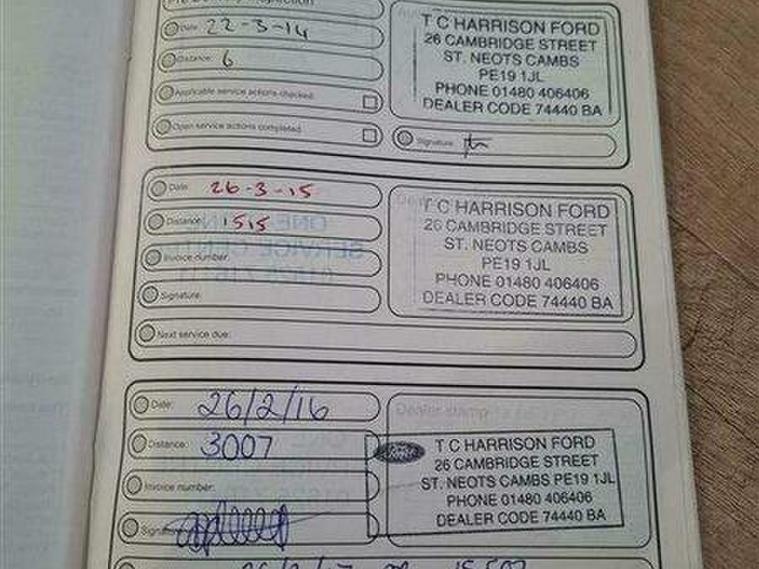 Date: 22-3-14
Distance: 6
Applicable service actions checked:
Open service actions completed:
T C HARRISON FORD
26 CAMBRIDGE STREET
ST. NEOTS CAMBS
PE19 1JL
PHONE 01480 406406
DEALER CODE 74440 BA
Signature:
Date: 26-3-15
Distance: 1515
Invoice number:
Signature:
Next service due:
T C HARRISON FORD
26 CAMBRIDGE STREET
ST. NEOTS CAMBS
PE19 1JL
PHONE 01480 406406
DEALER CODE 74440 BA
Date: 26/2/16
Distance: 3007
Invoice number:
Signature:
Dealer stamp
Ford
T C HARRISON FORD
26 CAMBRIDGE STREET
ST. NEOTS CAMBS PE19 1JL
PHONE 01480 406406
DEALER CODE 74440 BA